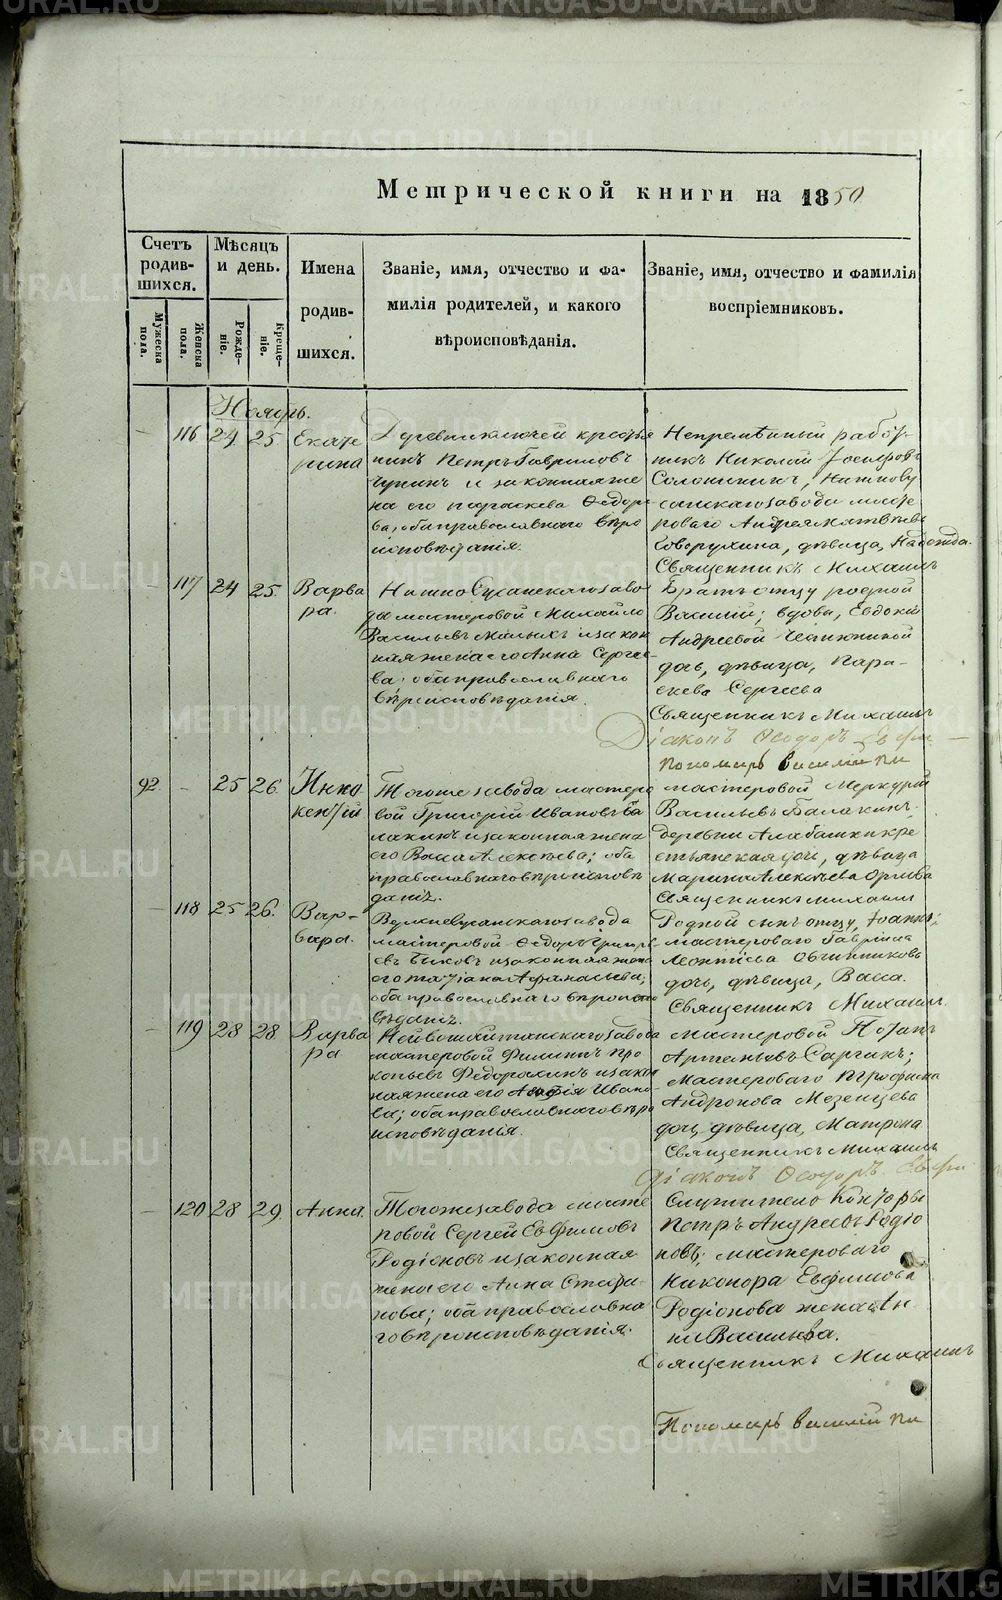 Метрической книги на 1850
Счетъ родив-шихся.
Мѣсяцъ и день.
Имена родив-шихся.
Званіе, имя, отчество и фа-
милія родителей, и какого
вѣроисповѣданія.
Званіе, имя, отчество и фамилія
воспріемниковъ.
Мужеска пола.
Женска пола.
Рожде-ніе.
Креще-ніе.
Ноябрь.
116 24 25 Екате
рина
кресть
нинъ Петръ Гавриловъ
и законная же
на его Параскева Ѳедоро
ва, оба православнаго вѣро
исповѣданія.
Непремѣнный работ-
никъ Николай Іосифовъ
завода масте
роваго Андрея Матвѣева
Говорухина, дѣвица, Надежда.
Священникъ Михаилъ
117 24 25 Варва
ра.
Нижно Сусанскаго заво
да мастеровой Михайло
Васильевъ Малыхъ и закон
ная жена его Анна Сергее
ва; оба православнаго
вѣроисповѣданія.
Братъ отцу родной
Василій; вдова, Евдокіи
Андреевой
дочь, дѣвица, Пара-
скева Сергеева
Священникъ Михаилъ
Діаконъ Ѳеодоръ
Пономарь Василій Пи
92 25 26 Инно
кентій
Тогоже завода мастеро
вой Григорій Ивановъ Ба
лакинъ и законная жена
его Васса Алексѣева; оба
православнаго вѣроисповѣ
данія.
мастеровой Меркурій
Васильевъ Балакинъ.
деревни Алабашки кре
стьянская дочь, дѣвица
Марина Алексѣева
Священникъ Михаилъ
118 25 26. Вар-
вара.
Верхнесусанскаго завода
мастеровой Ѳедоръ Григорь
евъ Быковъ и законная жена
его Татіана Афанасьева;
оба православнаго вѣроиспо
вѣданія.
Родной сынъ отцу, Іоаннъ;
мастероваго Гавріила
Леонтіева Овчинникова
дочь, дѣвица, Васса.
Священникъ Михаилъ
119 28 28 Варва
ра
Нейвошайтанскаго завода
мастеровой Филиппъ Про
копьевъ Федорахинъ и закон
ная жена его Ивано
ва; оба православнаго вѣро
исповѣданія.
Мастеровой Потапъ
Артемьевъ Саргинъ;
мастероваго
Андронова Мезенцева
дочь, дѣвица, Матрона
Священникъ Михаилъ
Діаконъ Ѳеодоръ
120 28 29. Анна.
Тогоже завода масте
ровой Сергей Евфимовъ
Родіоновъ и законная
жена его Анна Стефа-
нова; оба православна
го вѣроисповѣданія.
Служитель Конторы
Петръ Андреевъ Родіо
новъ; мастероваго
Никонора Евфимова
Родіонова жена Ан
на Васильева.
Священникъ Михаилъ
Пономарь Василій Пи
METRIKI.GASO-URAL.RU